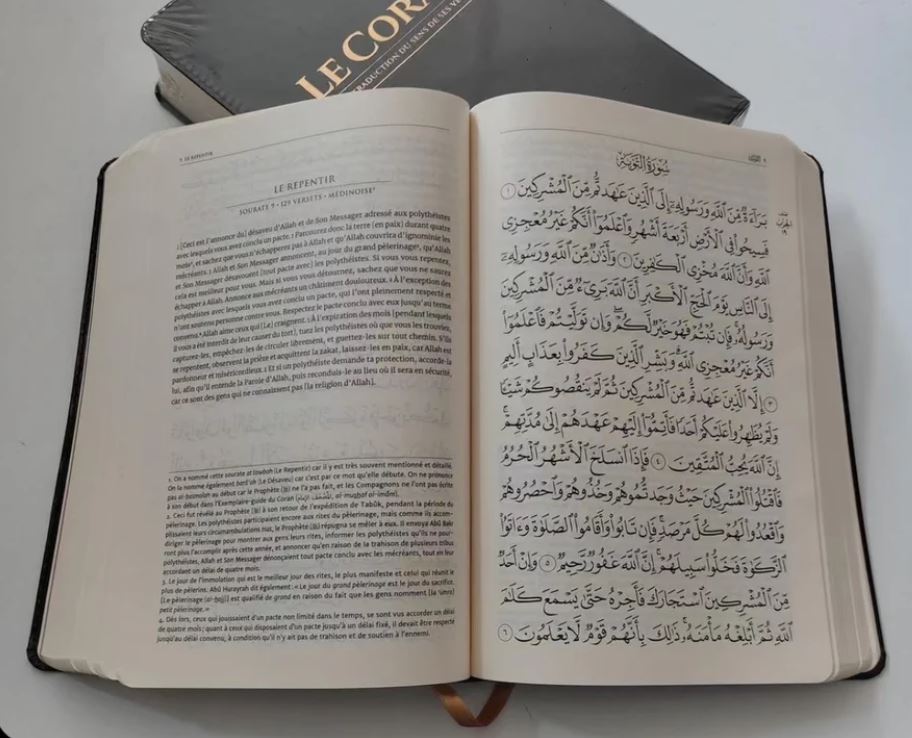 LE CORA
TRADUCTION DU SENS DE SES VE
9. LE REPENTIR
LE REPENTIR
SOURATE 9 • 129 VERSETS • MÉDINOISE¹
1 [Ceci est l'annonce du] désaveu d'Allah et de Son Messager adressé aux polythéistes
avec lesquels vous avez conclu un pacte. 2 Parcourez donc la terre (en paix) durant quatre
mois², et sachez que vous n'échapperez pas à Allah et qu'Allah couvrira d'ignominie les
mécréants. 3 Allah et Son Messager annoncent, au jour du grand pèlerinage³, qu'Allah
et Son Messager désavouent [tout pacte avec] les polythéistes. Si vous vous repentez,
cela est meilleur pour vous. Mais si vous vous détournez, sachez que vous ne saurez
échapper à Allah. Annonce aux mécréants un châtiment douloureux. 4 À l'exception des
polythéistes avec lesquels vous avez conclu un pacte, qui l'ont pleinement respecté et
n'ont soutenu personne contre vous. Respectez le pacte conclu avec eux jusqu'au terme
convenu.⁴ Allah aime ceux qui [Le] craignent. 5 À l'expiration des mois [pendant lesquels
il vous a été interdit de leur causer du tort], tuez les polythéistes où que vous les trouviez,
capturez-les, empêchez-les de circuler librement, et guettez-les sur tout chemin. S'ils
se repentent, observent la prière et acquittent la zakat, laissez-les en paix, car Allah est
pardonneur et miséricordieux. 6 Et si un polythéiste demande ta protection, accorde-la
lui, afin qu'il entende la Parole d'Allah, puis reconduis-le au lieu où il sera en sécurité,
car ce sont des gens qui ne connaissent pas [la religion d'Allah].
1. On a nommé cette sourate at-tawbah (Le Repentir) car il y est très souvent mentionné et détaillé.
On la nomme également barâ'ah (Le Désaveu) car c'est par ce mot qu'elle débute. On ne prononce
pas al-basmalah au début car le Prophète (ﷺ) ne l'a pas fait, et les Compagnons ne l'ont pas écrite
à son début dans l'Exemplaire guide du Coran (المُصْحَف الإِمَام, al-mushaf al-imâm).
2. Ceci fut révélé au Prophète (ﷺ) à son retour de l'expédition de Tabûk, pendant la période du
pèlerinage. Les polythéistes participaient encore aux rites du pèlerinage, mais comme ils accom-
plissaient leurs circumambulations nus, le Prophète (ﷺ) répugna se mêler à eux. Il envoya Abû Bakr
diriger le pèlerinage pour montrer aux gens leurs rites, informer les polythéistes qu'ils ne pour-
ront plus l'accomplir après cette année, et annoncer qu'en raison de la trahison de plusieurs tribus
polythéistes, Allah et Son Messager dénonçaient tout pacte conclu avec les mécréants, tout en leur
accordant un délai de quatre mois.
3. Le jour de l'immolation qui est le meilleur jour des rites, le plus manifeste et celui qui réunit le
plus de pèlerins. Abû Hurayrah dit également : « Le jour du grand pèlerinage est le jour du sacrifice.
[Le pèlerinage (al-hajj)] est qualifié de grand en raison du fait que les gens nomment [la 'umra]
petit pèlerinage. »
4. Dès lors, ceux qui jouissaient d'un pacte non limité dans le temps, se sont vus accorder un délai
de quatre mois ; quant à ceux qui disposaient d'un pacte jusqu'à un délai fixé, il devait être respecté
jusqu'au délai convenu, à condition qu'il n'y ait pas de trahison et de soutien à l'ennemi.
سُورَةُ التَّوْبَةِ
بَرَآءَةٌ مِّنَ ٱللَّهِ وَرَسُولِهِۦٓ إِلَى ٱلَّذِينَ عَٰهَدتُّم مِّنَ ٱلْمُشْرِكِينَ ١
فَسِيحُوا۟ فِى ٱلْأَرْضِ أَرْبَعَةَ أَشْهُرٍ وَٱعْلَمُوٓا۟ أَنَّكُمْ غَيْرُ مُعْجِزِى
ٱللَّهِ وَأَنَّ ٱللَّهَ مُخْزِى ٱلْكَٰفِرِينَ ٢ وَأَذَٰنٌ مِّنَ ٱللَّهِ وَرَسُولِهِۦٓ
إِلَى ٱلنَّاسِ يَوْمَ ٱلْحَجِّ ٱلْأَكْبَرِ أَنَّ ٱللَّهَ بَرِىٓءٌ مِّنَ ٱلْمُشْرِكِينَ
وَرَسُولُهُۥ فَإِن تُبْتُمْ فَهُوَ خَيْرٌ لَّكُمْ وَإِن تَوَلَّيْتُمْ فَٱعْلَمُوٓا۟
أَنَّكُمْ غَيْرُ مُعْجِزِى ٱللَّهِ وَبَشِّرِ ٱلَّذِينَ كَفَرُوا۟ بِعَذَابٍ أَلِيمٍ
٣ إِلَّا ٱلَّذِينَ عَٰهَدتُّم مِّنَ ٱلْمُشْرِكِينَ ثُمَّ لَمْ يَنقُصُوكُمْ شَيْـًٔا
وَلَمْ يُظَٰهِرُوا۟ عَلَيْكُمْ أَحَدًا فَأَتِمُّوٓا۟ إِلَيْهِمْ عَهْدَهُمْ إِلَىٰ مُدَّتِهِمْ
إِنَّ ٱللَّهَ يُحِبُّ ٱلْمُتَّقِينَ ٤ فَإِذَا ٱنسَلَخَ ٱلْأَشْهُرُ ٱلْحُرُمُ
فَٱقْتُلُوا۟ ٱلْمُشْرِكِينَ حَيْثُ وَجَدتُّمُوهُمْ وَخُذُوهُمْ وَٱحْصُرُوهُمْ
وَٱقْعُدُوا۟ لَهُمْ كُلَّ مَرْصَدٍ فَإِن تَابُوا۟ وَأَقَامُوا۟ ٱلصَّلَوٰةَ وَءَاتَوُا۟
ٱلزَّكَوٰةَ فَخَلُّوا۟ سَبِيلَهُمْ إِنَّ ٱللَّهَ غَفُورٌ رَّحِيمٌ ٥ وَإِنْ أَحَدٌ
مِّنَ ٱلْمُشْرِكِينَ ٱسْتَجَارَكَ فَأَجِرْهُ حَتَّىٰ يَسْمَعَ كَلَٰمَ
ٱللَّهِ ثُمَّ أَبْلِغْهُ مَأْمَنَهُۥ ذَٰلِكَ بِأَنَّهُمْ قَوْمٌ لَّا يَعْلَمُونَ ٦